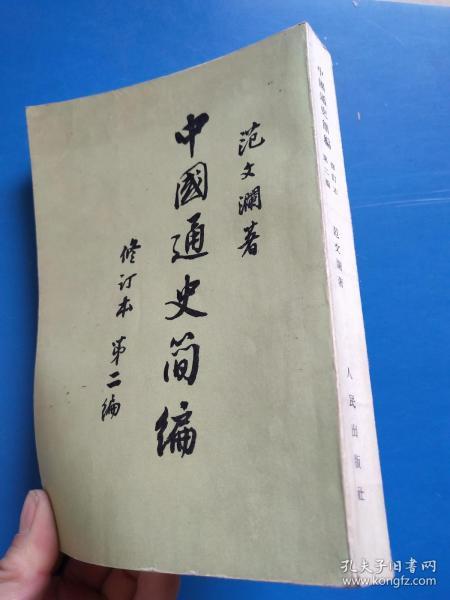 范文瀾著
中國通史简编
修订本 第二编
中國通史簡編 修訂本 第二編 范文瀾著 人民出版社
孔夫子旧书网
www.kongfz.com